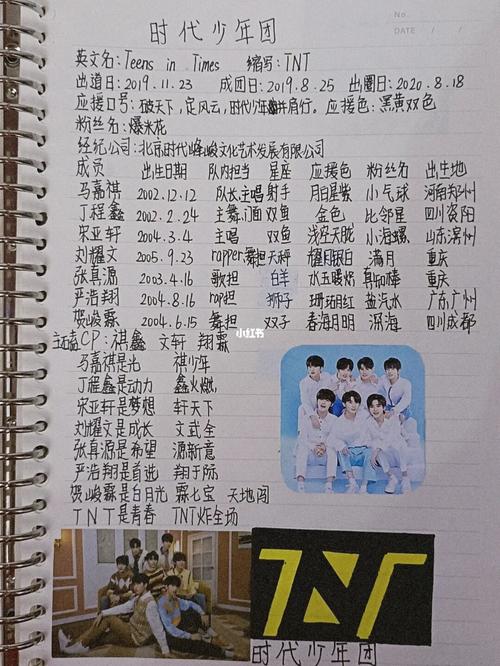 No.
DATE / /
时代少年团
英文名:Teens in Times 缩写:TNT
出道日:2019.11.23 成团日:2019.8.25 出圈日:2020.8.18
应援口号:破天下,定风云,时代少年并肩行。应援色:黑黄双色
粉丝名:爆米花
经纪公司:北京时代峰峻文化艺术发展有限公司
成员 出生日期 队内担当 星座 应援色 粉丝名 出生地
马嘉祺 2002.12.12 队长主唱 射手 月白星紫 小气球 河南郑州
丁程鑫 2002.2.24 主舞,门面 双鱼 金色 比邻星 四川资阳
宋亚轩 2004.3.4 主唱 双鱼 浅空天胧 小海螺 山东滨州
刘耀文 2005.9.23 rapper舞担 天秤 耀月眼白 满月 重庆
张真源 2003.4.16 歌担 白羊 水五暖熔 真知棒 重庆
严浩翔 2004.8.16 rap担 狮子 珊瑚月红 盐汽水 广东广州
贺峻霖 2004.6.15 舞担 双子 春海月明 深海 四川成都
CP:祺鑫 文轩 翔霖
马嘉祺是光 祺少年
丁程鑫是动力 鑫火燃
宋亚轩是梦想 轩天下
刘耀文是成长 文式全
张真源是希望 源新意
严浩翔是首选 翔于际
贺峻霖是白月光 霖七宝 天地闯
TNT是青春 TNT炸全场
小红书
TNT
时代少年团